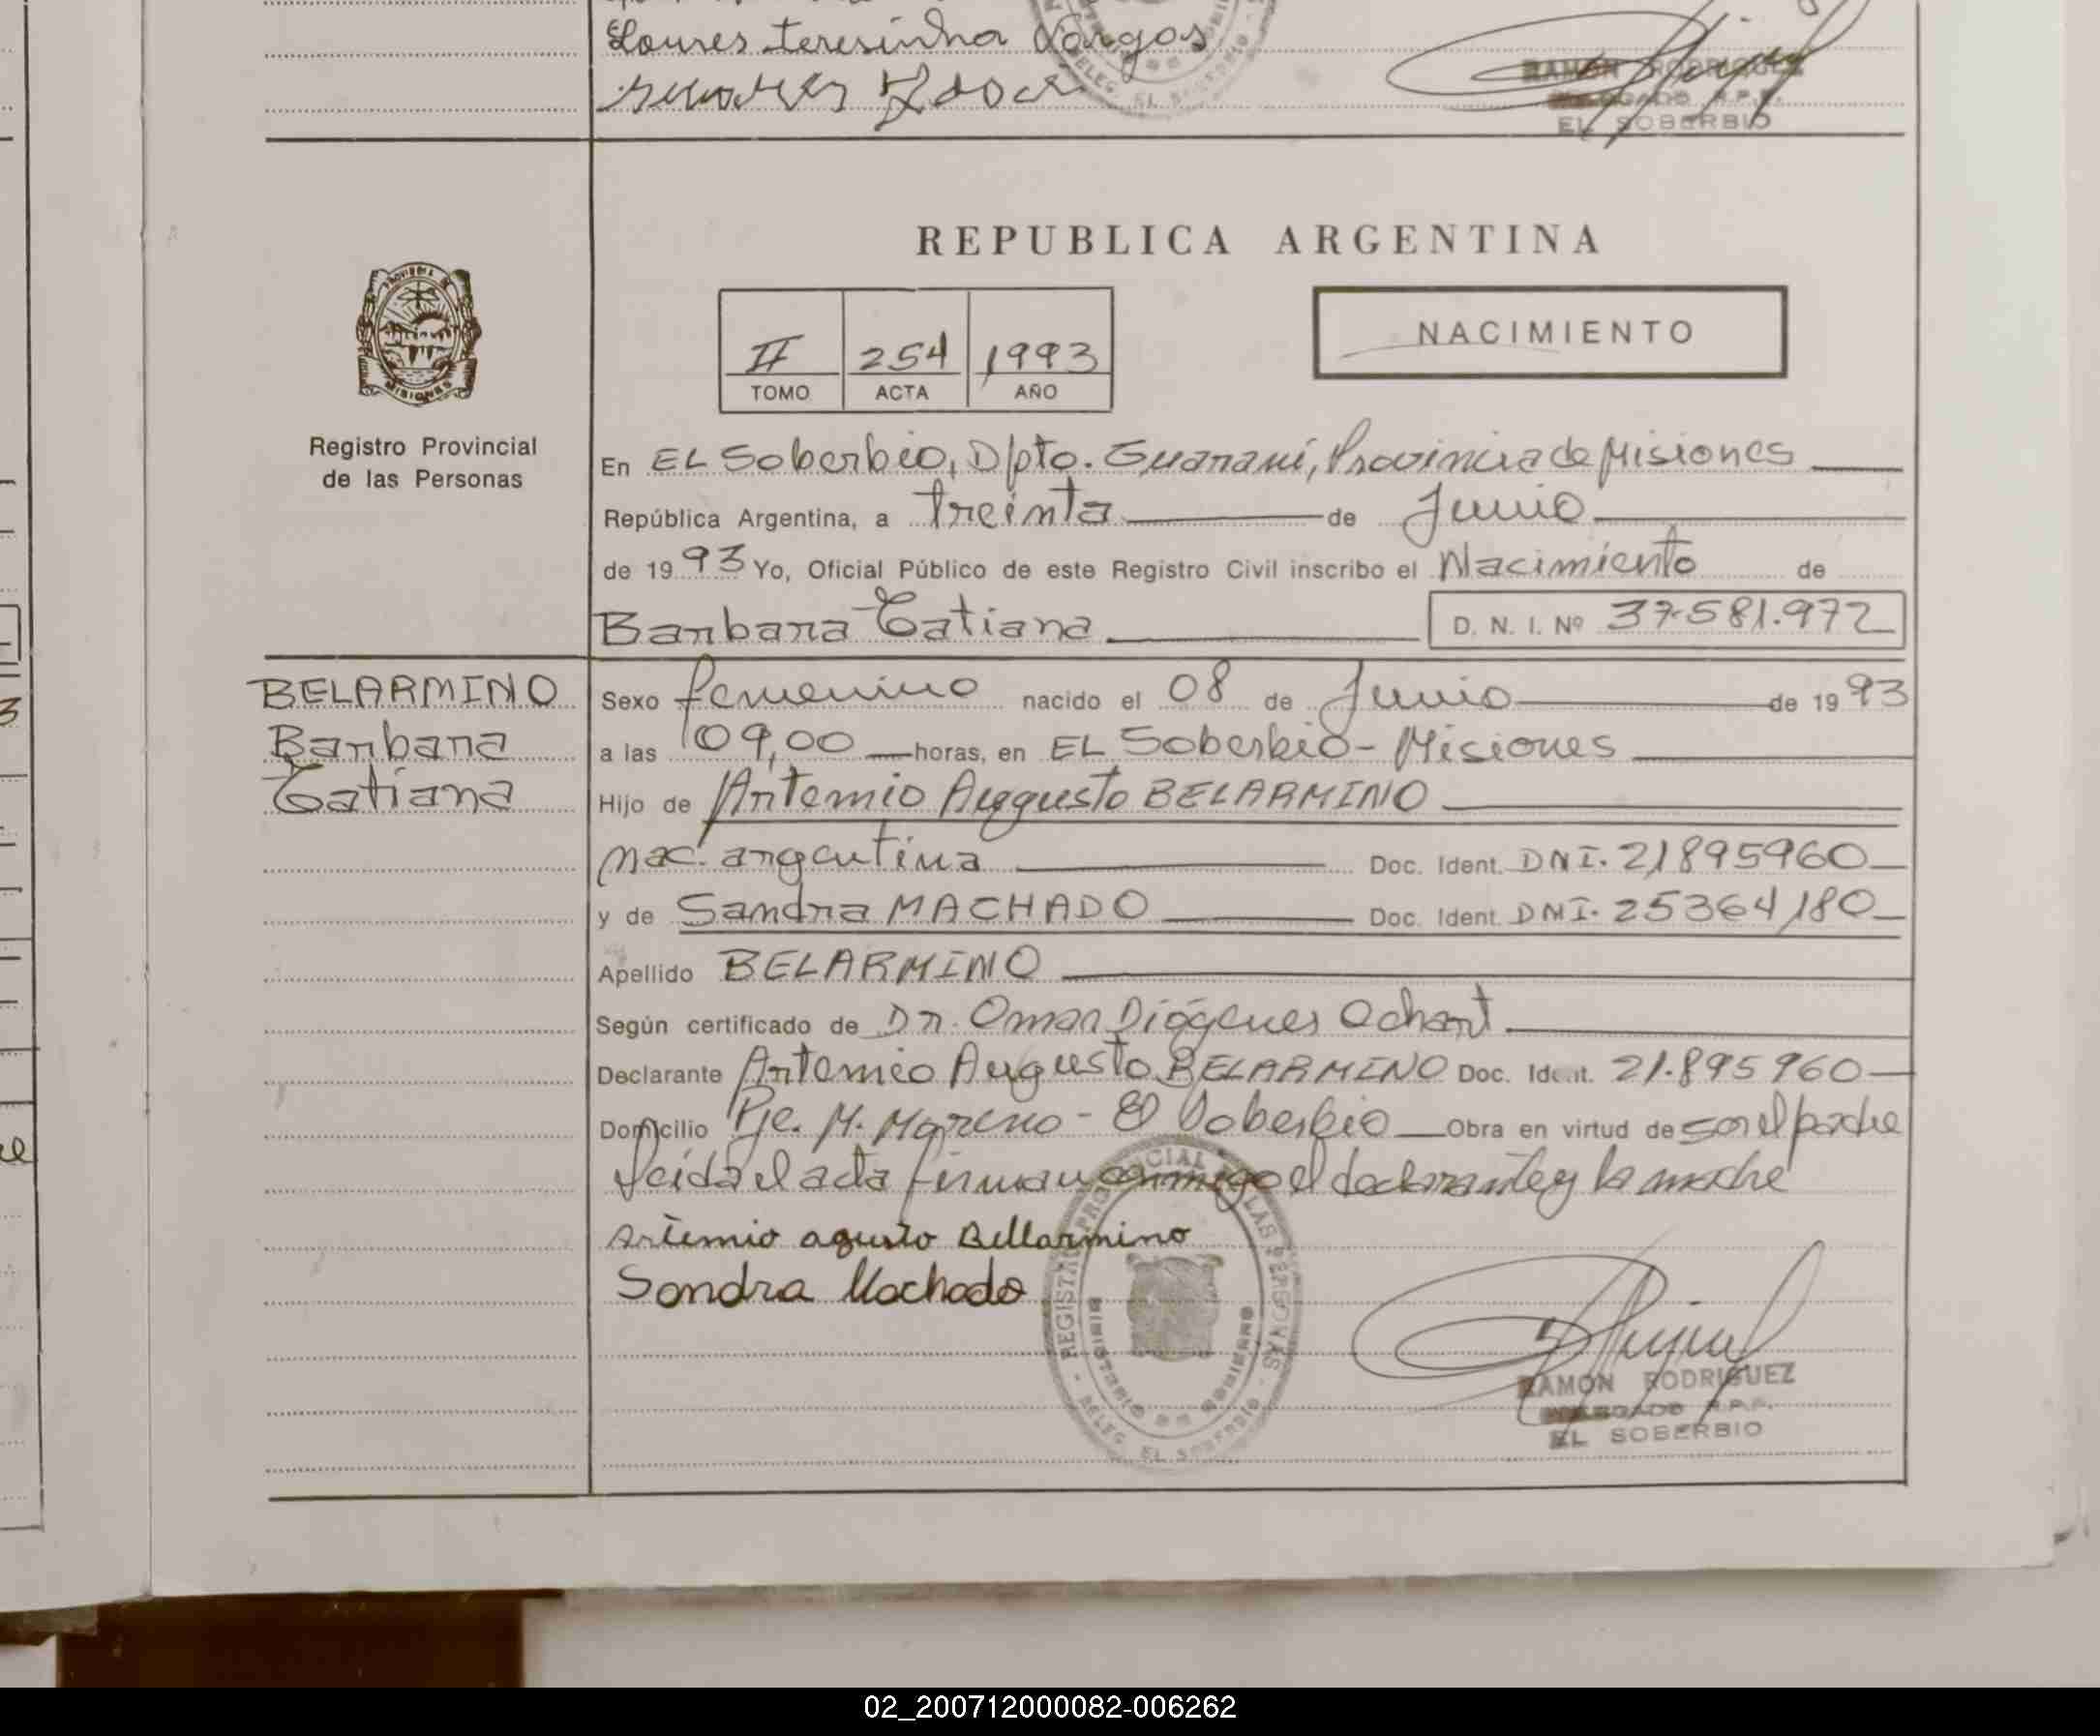 Loures teresinha Vargas
RAMON RODRIGUEZ
EL SOBERBIO
REPUBLICA ARGENTINA
II 254 1993
TOMO ACTA AÑO
NACIMIENTO
PROVINCIA DE
MISIONES
Registro Provincial
de las Personas
En EL Soberbio, Dpto. Guaraní, Provincia de Misiones
República Argentina, a treinta de Junio
de 1993 Yo, Oficial Público de este Registro Civil inscribo el Nacimiento de
Barbara Tatiana D. N. I. Nº 37.581.972
BELARMINO
Barbara
Tatiana
Sexo femenino nacido el 08 de Junio de 1993
a las 09,00 horas, en EL Soberbio - Misiones
Hijo de Artemio Auggusto BELARMINO
nac. argentina Doc. Ident. DNI. 21895960
y de Sandra MACHADO Doc. Ident. DNI. 25364180
Apellido BELARMINO
Según certificado de Dr. Omar Diógenes Ochart
Declarante Artemio Augusto BELARMINO Doc. Ident. 21.895960
Domicilio Pje. M. Moreno - El Soberbio Obra en virtud de ser el padre
Leida el acta firman conmigo el declarante y la madre
Artemio agusto Bellarmino
Sandra Machado
REGISTRO PROVINCIAL DE LAS PERSONAS
MINISTERIO DE GOBIERNO
DELEG. EL SOBERBIO
RAMON RODRIGUEZ
EL SOBERBIO
02_200712000082-006262